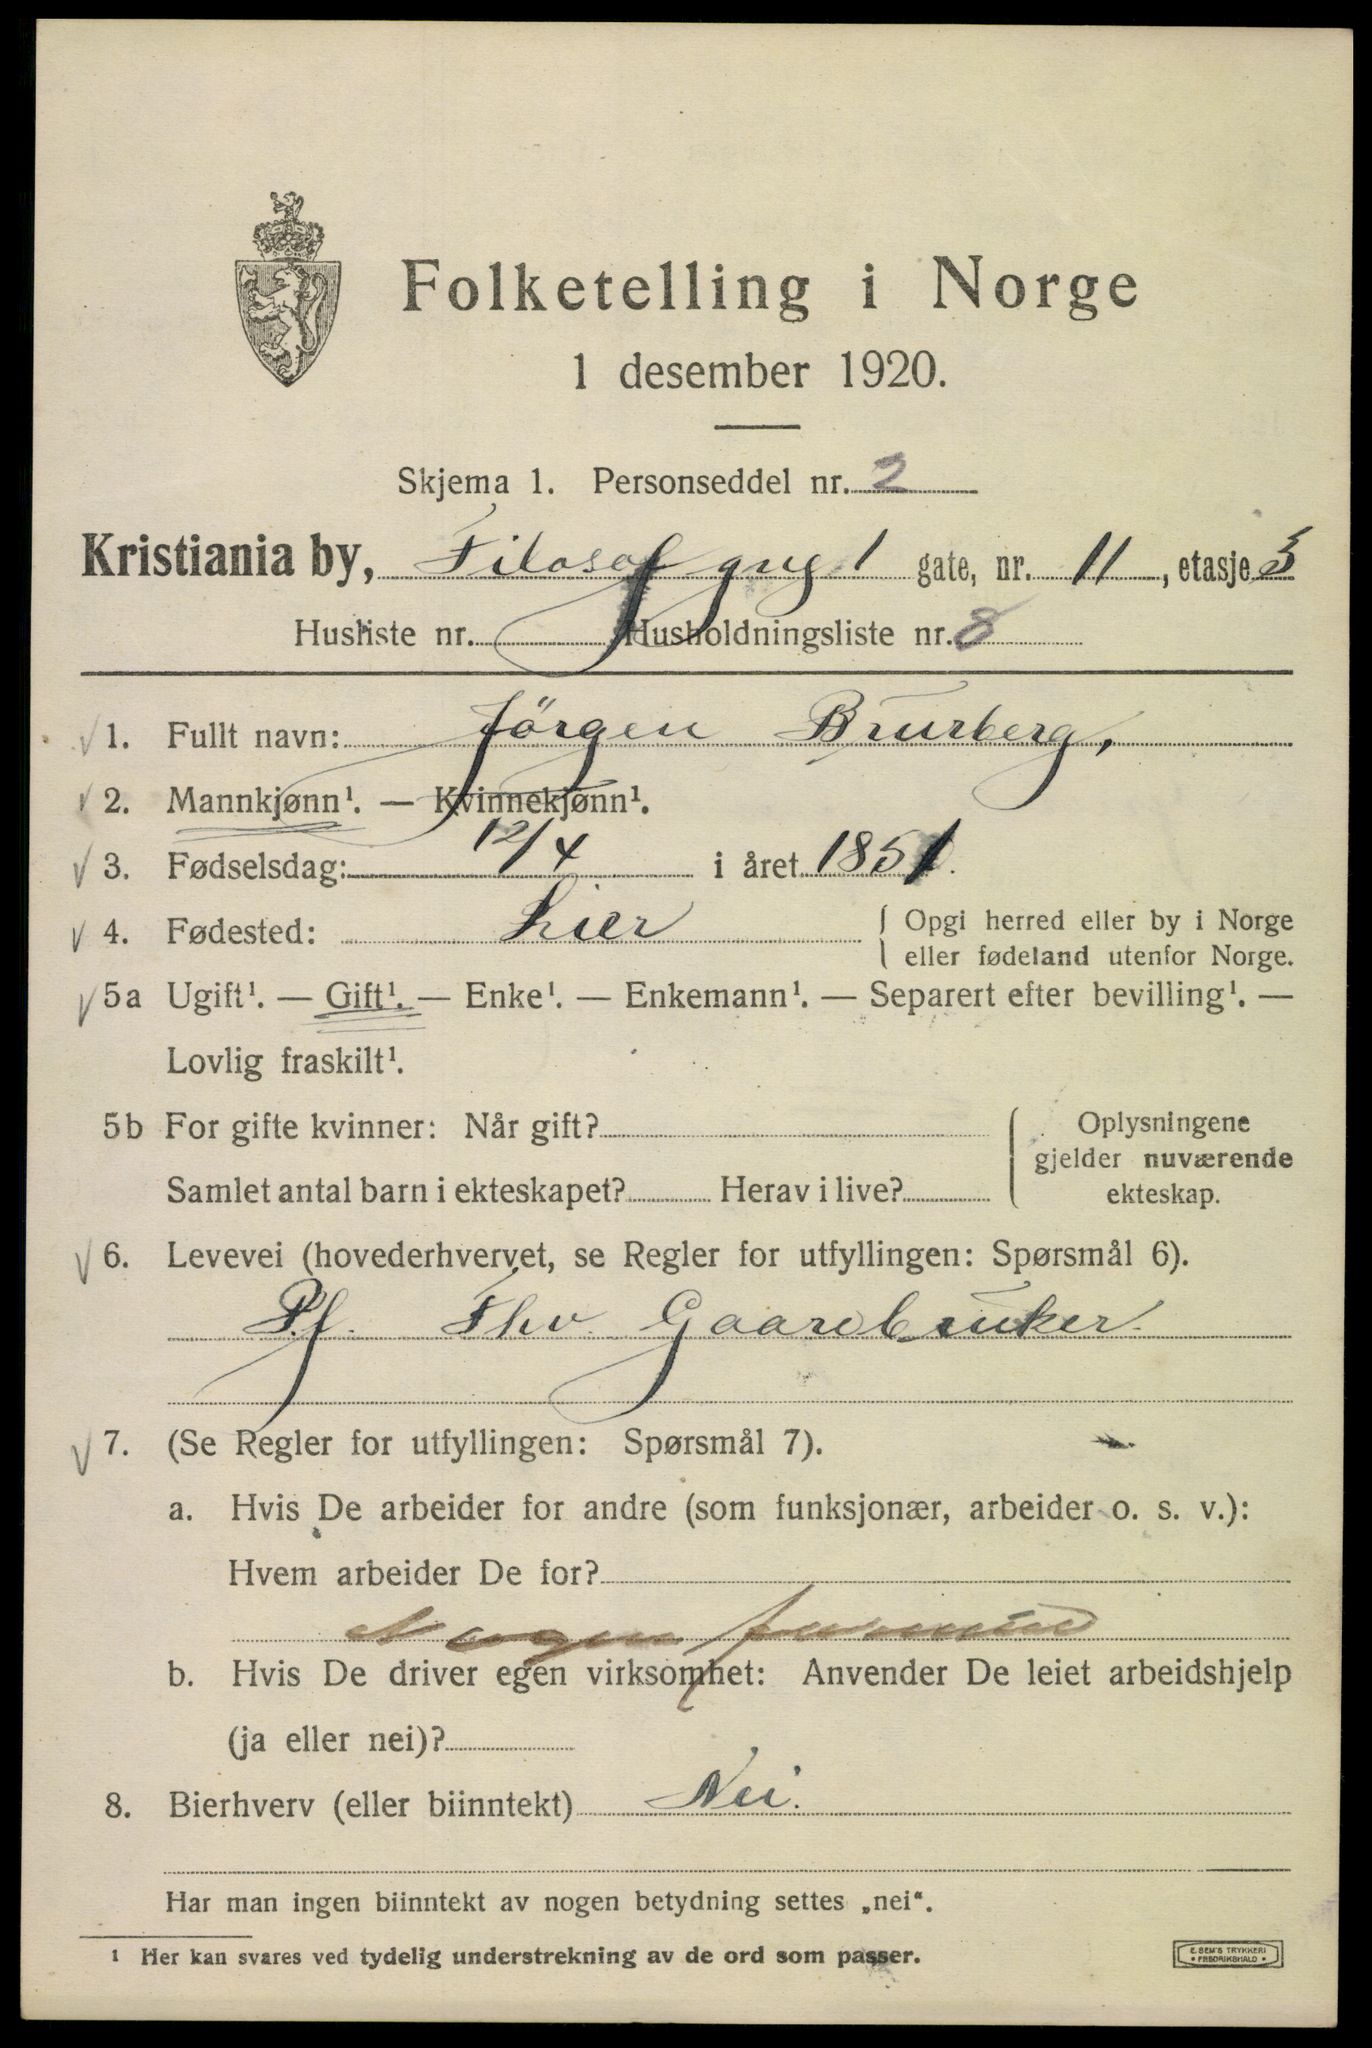 Folketelling i Norge
1 desember 1920.
Skjema 1. Personseddel nr. 2
Kristiania by, Filosof gate, nr. 11, etasje 3
Husliste nr. Husholdningsliste nr. 8
1. Fullt navn: Jörgen Brurberg,
2. Mannkjønn¹. — Kvinnekjønn¹.
3. Fødselsdag: 12/4 i året 1851.
4. Fødested: Lier { Opgi herred eller by i Norge
eller fødeland utenfor Norge.
5a Ugift¹. — Gift¹. — Enke¹. — Enkemann¹. — Separert efter bevilling¹. —
Lovlig fraskilt¹.
5b For gifte kvinner: Når gift? Oplysningene
gjelder nuværende
Samlet antal barn i ekteskapet? Herav i live? ekteskap.
6. Levevei (hovederhvervet, se Regler for utfyllingen: Spørsmål 6).
Pf. Fhv. Gaardbruker.
7. (Se Regler for utfyllingen: Spørsmål 7).
a. Hvis De arbeider for andre (som funksjonær, arbeider o. s. v.):
Hvem arbeider De for?
formue
b. Hvis De driver egen virksomhet: Anvender De leiet arbeidshjelp
(ja eller nei)?
8. Bierhverv (eller biinntekt) Nei.
Har man ingen biinntekt av nogen betydning settes „nei“.
¹ Her kan svares ved tydelig understrekning av de ord som passer.
E. SEM'S TRYKKERI
• FREDRIKSHALD •